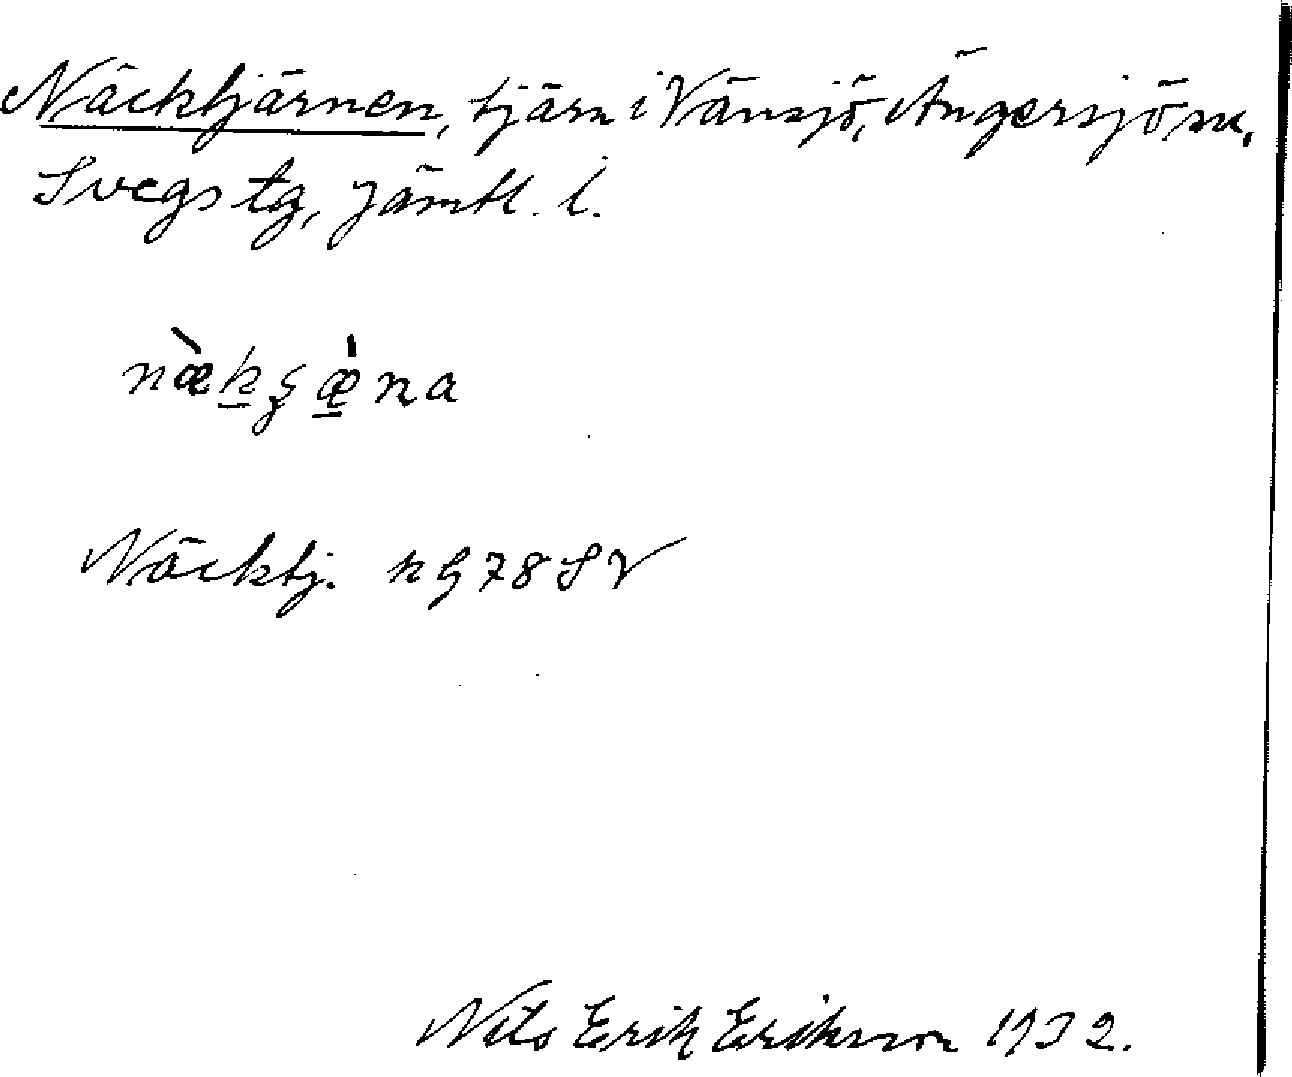 Näcktjärnen, tjärn i Vänsjö, Ängersjö sn,
Svegs tg, Jämtl. l.
nækʂæ̀ɳa
Näcktj. k G 78 SV
Nils Erik Eriksson 1932.